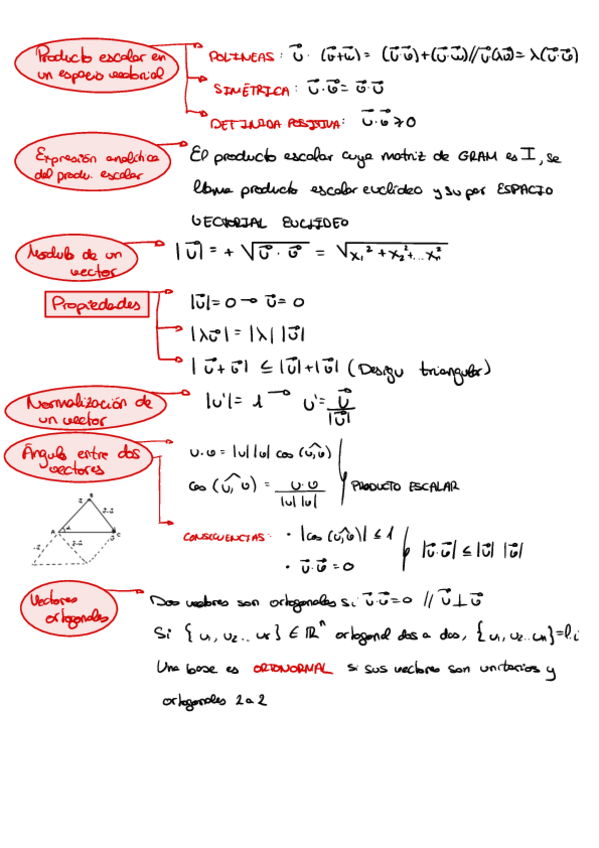 Producto escalar en un espacio vectorial
POLINEAS: u⃗ · (v⃗+w⃗) = (u⃗·v⃗)+(u⃗·w⃗)//u⃗(λv⃗) = λ(u⃗·v⃗)
SIMÉTRICA: u⃗·v⃗ = v⃗·u⃗
DEFINIDA POSITIVA: u⃗·v⃗ > 0
Expresión analítica del produ. escalar
El producto escalar cuya matriz de GRAM es I, se
llama producto escalar euclídeo y su par ESPACIO
VECTORIAL EUCLIDEO
Modulo de un vector
|u⃗| = + √(u⃗ · u⃗) = √(x₁² + x₂² + ... xₙ²)
Propiedades
|u⃗| = 0 → u⃗ = 0
|λv⃗| = |λ| |v⃗|
|u⃗+v⃗| ≤ |u⃗|+|v⃗| (Desigu triangular)
Normalización de un vector
|u'| = 1 → u' = u⃗/|u⃗|
Ángulo entre dos vectores
u·v = |u||v| cos (u,v)
cos (u,v) = u·v/|u||v|
PRODUCTO ESCALAR
CONSECUENCIAS:
· |cos (u,v)| ≤ 1
|u⃗·v⃗| ≤ |u⃗| |v⃗|
· u⃗·v⃗ = 0
A
B
C
Vectores ortogonales
Dos vectores son ortogonales si u⃗·v⃗ = 0 // u⃗⊥v⃗
Si {u₁, u₂.. ur} ∈ ℝⁿ ortogonal dos a dos, {u₁, u₂...un}=l.i
Una base es ORTONORMAL si sus vectores son unitarios y
ortogonales 2 a 2